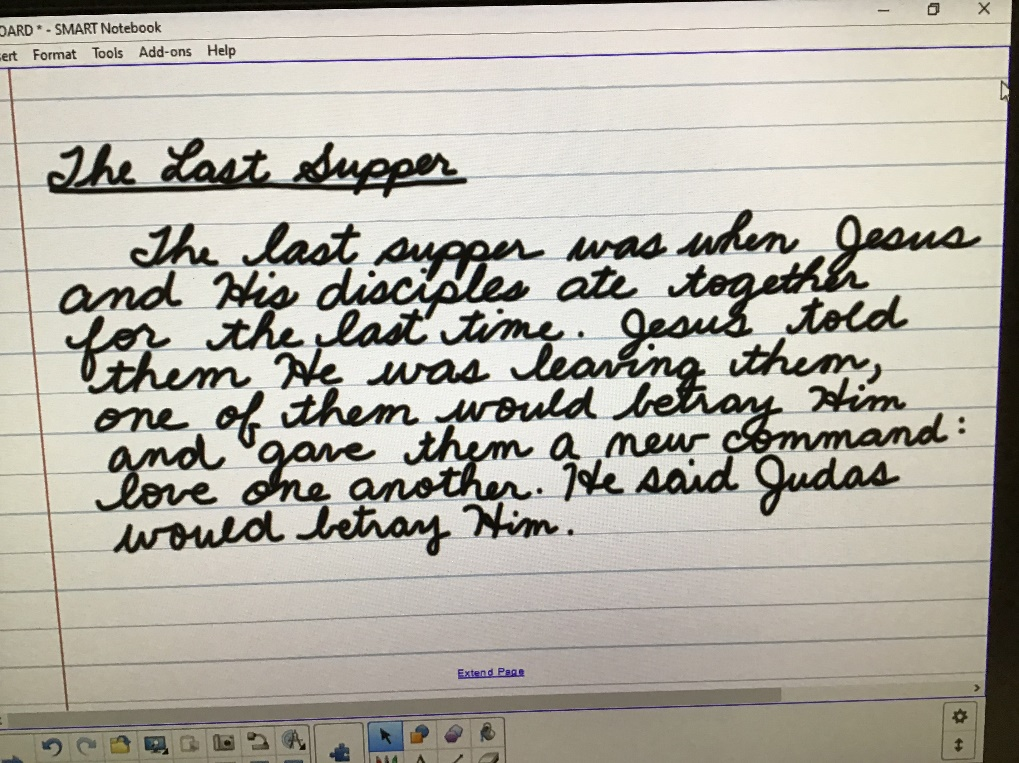 OARD * - SMART Notebook
ert Format Tools Add-ons Help
The Last Supper
The last supper was when Jesus
and His disciples ate together
for the last time. Jesus told
them He was leaving them,
one of them would betray Him
and gave them a new command:
love one another. He said Judas
would betray Him.
Extend Page